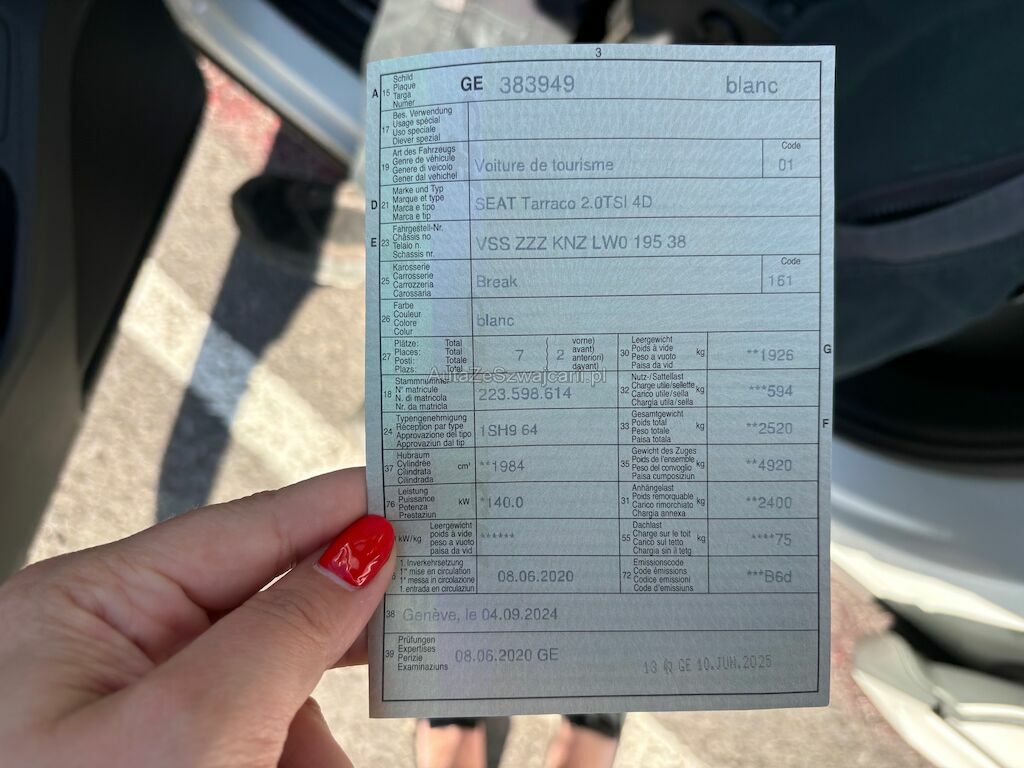 3
A 15 Schild Plaque Targa Numer GE 383949 blanc
17 Bes. Verwendung Usage spécial Uso speciale Diever spezial
19 Art des Fahrzeugs Genre de véhicule Genere di veicolo Gener dal vehichel Voiture de tourisme Code 01
D 21 Marke und Typ Marque et type Marca e tipo Marca e tip SEAT Tarraco 2.0TSI 4D
E 23 Fahrgestell-Nr. Châssis no Telaio n. Schassis nr. VSS ZZZ KNZ LW0 195 38
25 Karosserie Carrosserie Carrozzeria Carossaria Break Code 161
26 Farbe Couleur Colore Colur blanc
27 Plätze: Total Places: Total Posti: Totale Plazs: Total 7 { 2 vorne) avant) anteriori) davant) 30 Leergewicht Poids à vide Peso a vuoto Paisa da vid kg **1926 G
AutaZeSzwajcarii.pl
18 Stammnummer N° matricule N. di matricola Nr. da matricla 223.598.614 32 Nutz-/Sattellast Charge utile/sellette Carico utile/sella Chargia utila/sella kg ***594
24 Typengenehmigung Réception par type Approvazione del tipo Approvaziun dal tip 1SH9 64 33 Gesamtgewicht Poids total Peso totale Paisa totala kg **2520 F
37 Hubraum Cylindrée Cilindrata Cilindrada cm³ **1984 35 Gewicht des Zuges Poids de l'ensemble Peso del convoglio Paisa cumposiziun kg **4920
76 Leistung Puissance Potenza Prestaziun kW *140.0 31 Anhängelast Poids remorquable Carico rimorchiato Chargia annexa kg **2400
kW/kg Leergewicht poids à vide peso a vuoto paisa da vid ****** 55 Dachlast Charge sur le toit Carico sul tetto Chargia sin il tetg kg ****75
1. Inverkehrsetzung 1re mise en circulation 1a messa in circolazione 1. entrada en circulaziun 08.06.2020 72 Emissionscode Code émissions Codice emissioni Code d'emissiuns ***B6d
38 Genève, le 04.09.2024
39 Prüfungen Expertises Perizie Examinaziuns 08.06.2020 GE 13 GE 10.JUN.2025